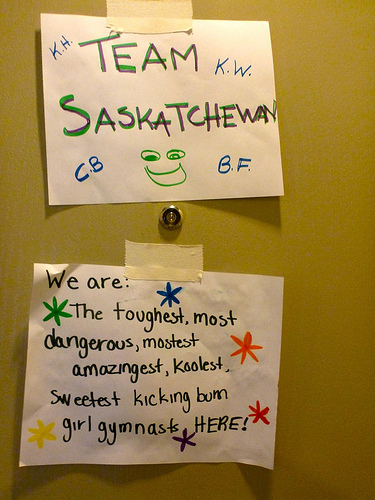 K.H.
TEAM
K.W.
SASKATCHEWAN
C.B
B.F.
We are:
The toughest, most
dangerous, mostest
amazingest, koolest,
sweetest kicking bum
girl gymnasts HERE!